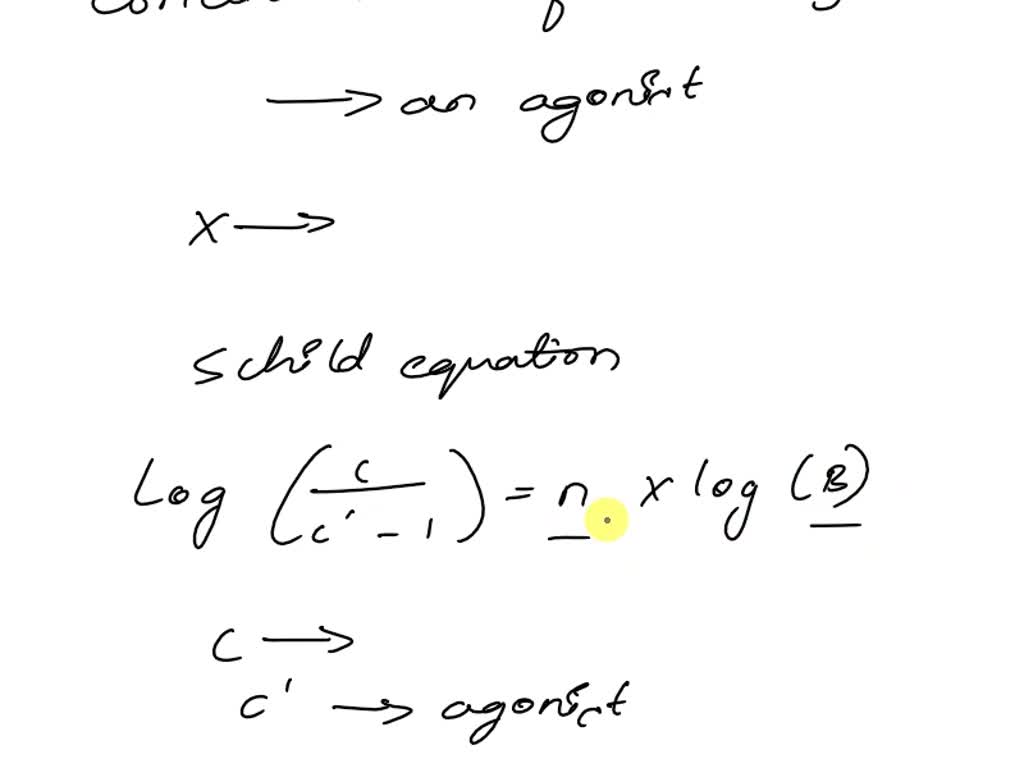 ⟶ an agonist
X ⟶
schild equation
Log (c / c' - 1) = n × log (B)
C ⟶
c' ⟶ agonist